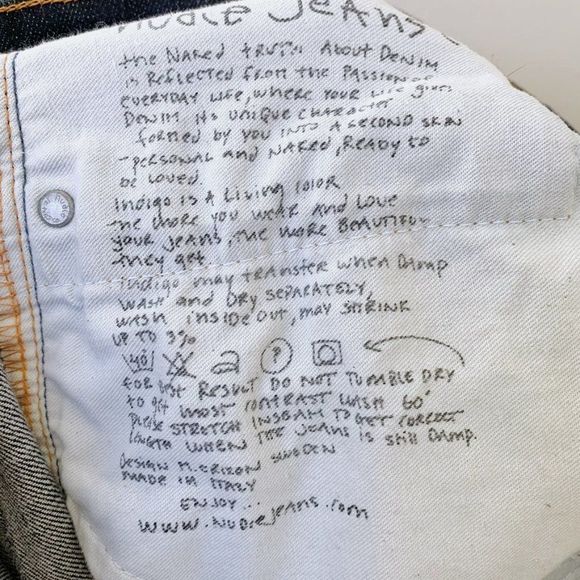 Nudie Jeans
the Naked truth About Denim
is Reflected from the Passion of
everyday Life, where your Life gives
Denim its unique character
formed by you into a second skin
-personal and Naked, Ready to
be loved.
Indigo is a Living color
the more you wear and Love
your jeans, the more Beautiful
they get
Indigo may transfer when Damp
wash and Dry separately,
wash inside out, may shrink
up to 3%
40 a P
for best Result Do not tumble Dry
to get most contrast wash 60°
Please stretch inseam to get correct
Length when the jeans is still Damp.
Design M. Erixon Sweden
made in Italy
Enjoy...
www.Nudiejeans.com